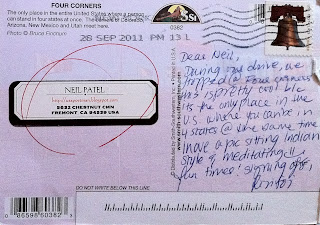 FOUR CORNERS
The only place in the entire United States where a person
can stand in four states at once. The states of Colorado,
Arizona, New Mexico and Utah meet here.
Photo © Bruce Fincham
0382
28 SEP 2011 PM 13 L
NEIL PATEL
FREMONT CA 94538 USA
DO NOT WRITE BELOW THIS LINE
0 86598 60382 3
© Distributed by Smith-Southwestern, Inc.
PRINTED IN U.S.A.
Dear Neil,
During our drive, we
stopped @ Four corners
this is pretty cool b/c
its the only place in the
U.S. where you can be in
4 states @ the same time
I have a pic sitting indian
style & meditating!!
fun times! signing off,